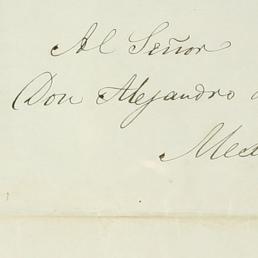 Al Señor
Don Alejandro